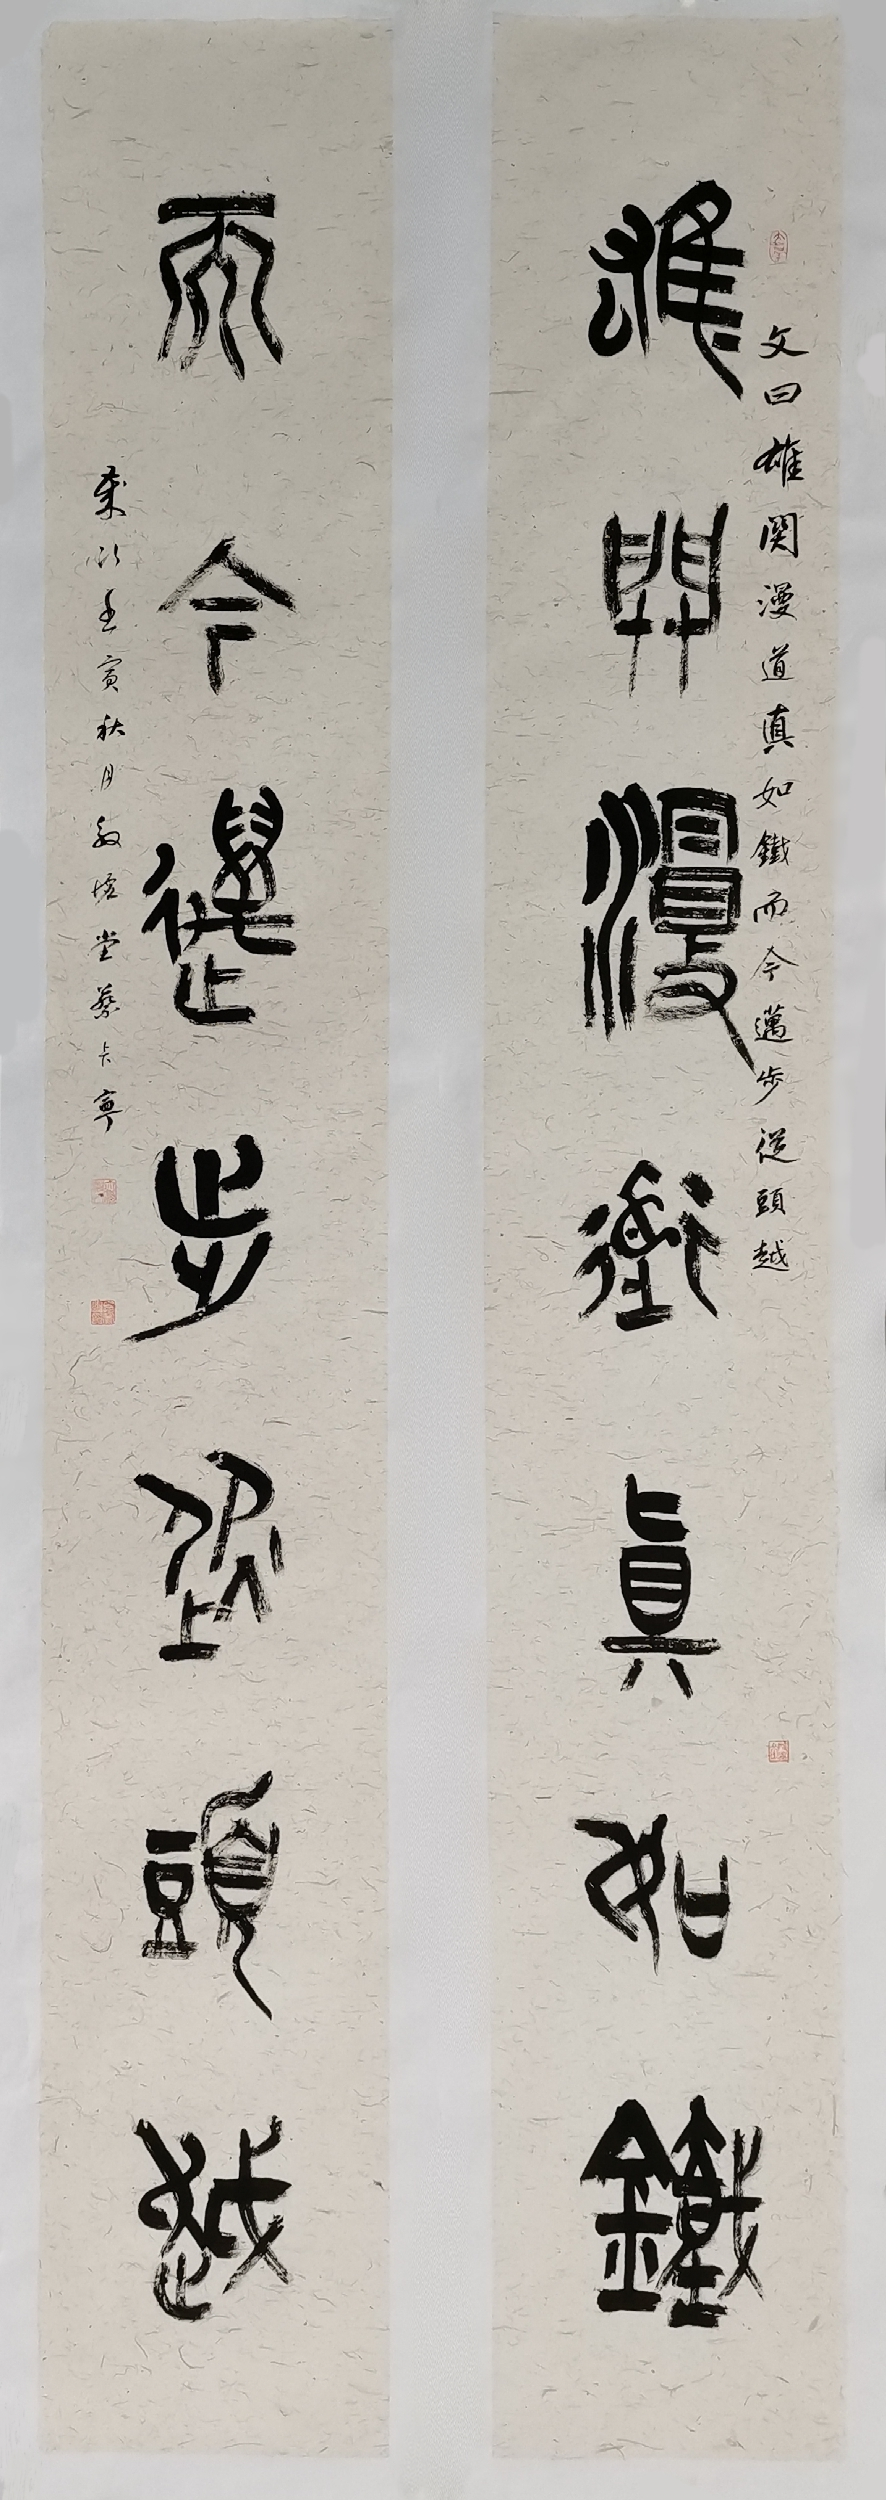 雄關漫道真如鐵
文曰雄関漫道真如鐵而今邁步從頭越
而今邁步從頭越
歲次壬寅秋月敬悟堂蔡卡寧